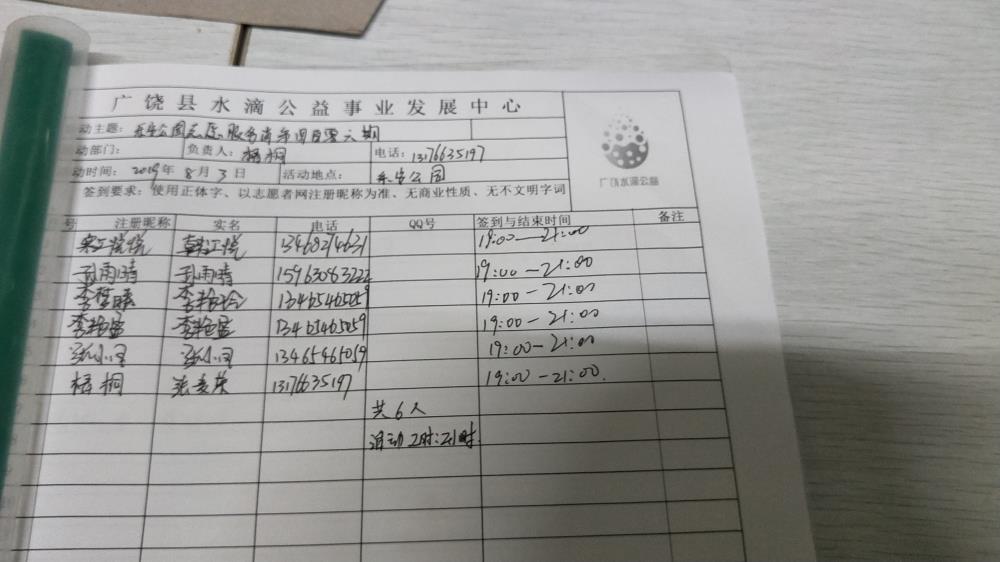 广饶县水滴公益事业发展中心
动主题： 乐安公园志愿服务 第四百零六期
动部门： 负责人：梧桐 电话：13176635197
动时间： 2019年8月3日 活动地点： 乐安公园
签到要求：使用正体字、以志愿者网注册昵称为准、无商业性质、无不文明字词
广饶水滴公益
号 注册昵称 实名 电话 QQ号 签到与结束时间 备注
13468274631 19:00—21:00
孙雨晴 孙雨晴 15963083222 19:00—21:00
李 李 13465465059 19:00—21:00
李 李 13465465059 19:00—21:00
张小 张小 13465465059 19:00—21:00
梧桐 张 13176635197 19:00—21:00.
共6人
活动2时